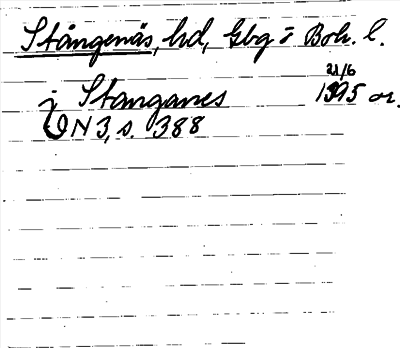 Stångenäs, hd, Gbg o Boh. l.
21/6
j Stanganes 1395 or.
ON 3, s. 388